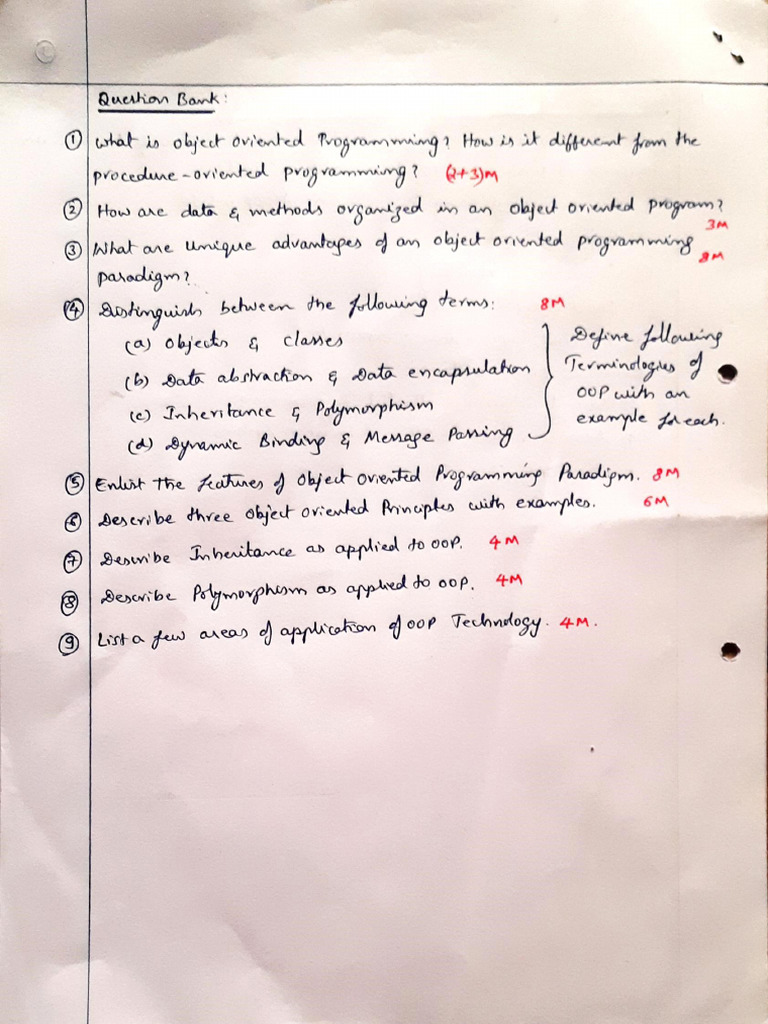 Question Bank:
① What is object oriented Programming? How is it different from the
procedure-oriented programming? (2+3)M
② How are data & methods organized in an object oriented program?
3M
③ What are unique advantages of an object oriented programming
8M
paradigm?
④ Distinguish between the following terms: 8M
(a) Objects & classes
(b) Data abstraction & Data encapsulation
(c) Inheritance & Polymorphism
(d) Dynamic Binding & Message Passing
Define following
Terminologies of
OOP with an
example for each.
⑤ Enlist the features of Object Oriented Programming Paradigm. 8M
⑥ Describe three Object Oriented Principles with examples. 6M
⑦ Describe Inheritance as applied to OOP. 4M
⑧ Describe Polymorphism as applied to OOP. 4M
⑨ List a few areas of application of OOP Technology. 4M.